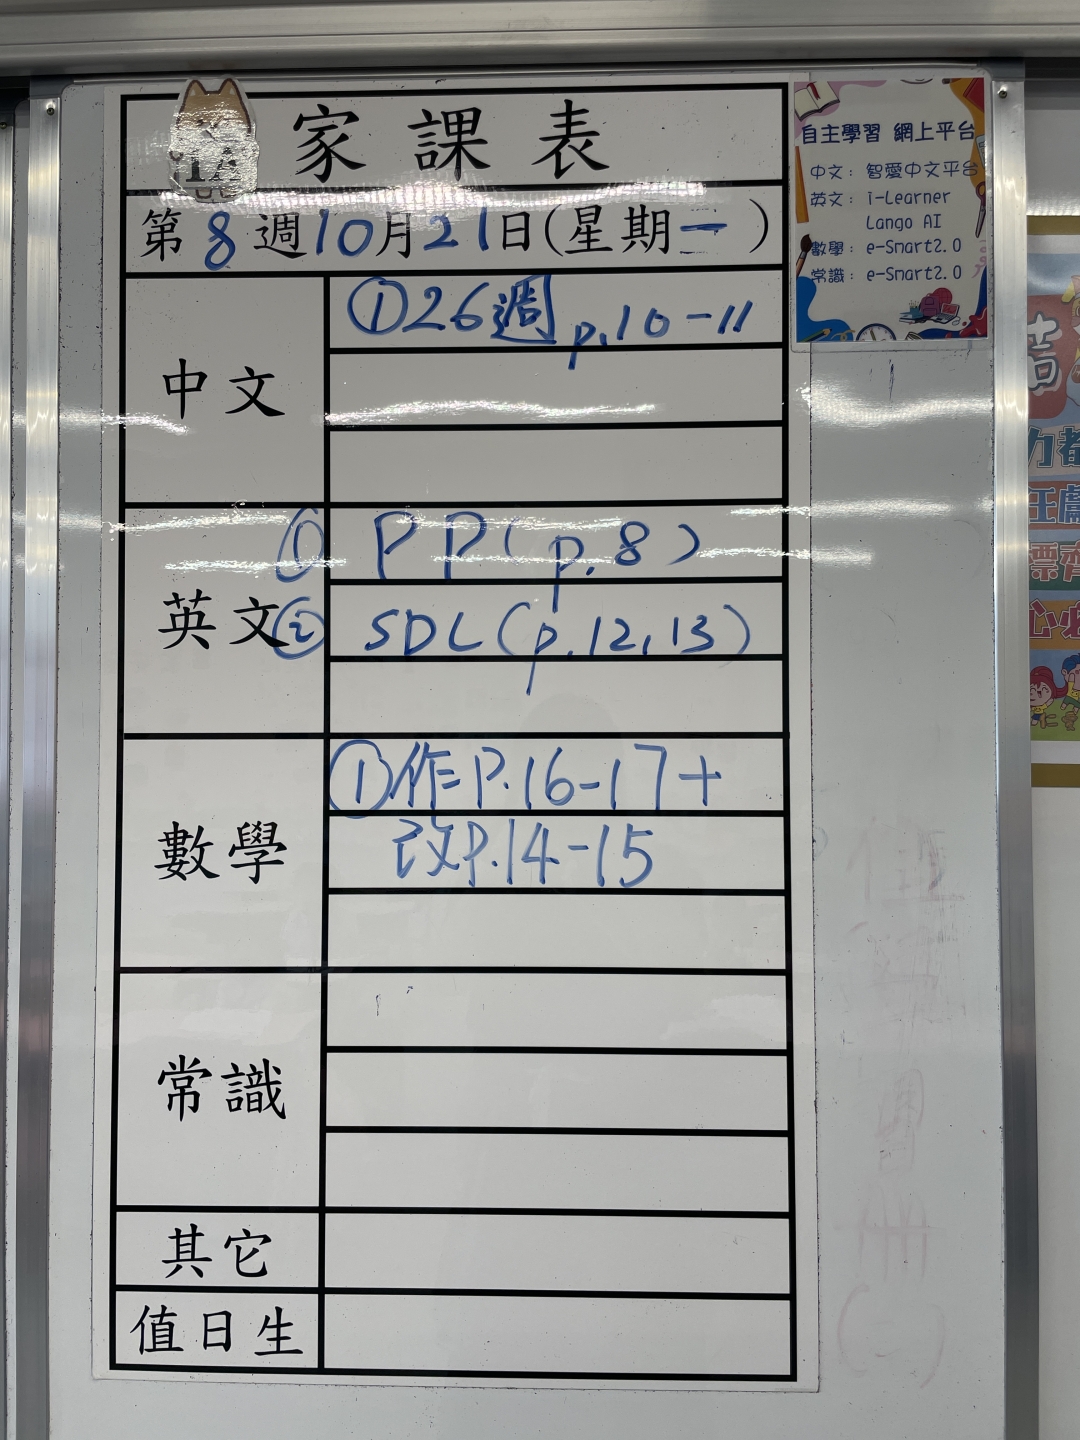 家課表
第8週10月21日(星期一)
中文
①26週 p.10-11
英文
① PP(p.8)
② SDL(p.12,13)
數學
①作P.16-17+
改P.14-15
常識
其它
值日生
自主學習 網上平台
中文：智愛中文平台
英文：i-Learner
Lango AI
數學：e-Smart2.0
常識：e-Smart2.0